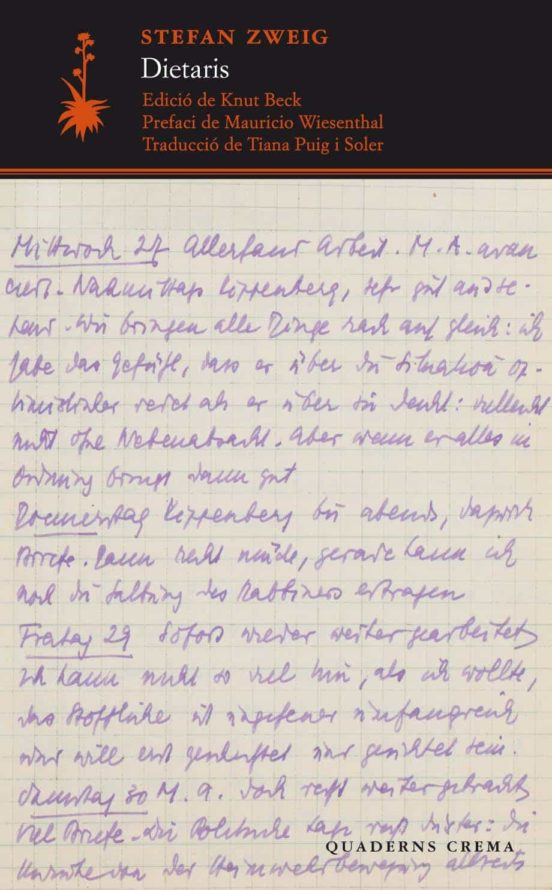 STEFAN ZWEIG
Dietaris
Edició de Knut Beck
Prefaci de Mauricio Wiesenthal
Traducció de Tiana Puig i Soler
Mittwoch 27 Allerhand Arbeit. M. A. avan
ciert. Nachmittags Kippenberg, sehr gut ausse-
hend. Wir bringen alle Dinge rasch auf gleich: ich
habe das Gefühl, dass er über die Situation op-
timistischer redet als er über sie denkt: vielleicht
nicht ohne Nebenabsicht. Aber wenn er alles in
Ordnung bringt dann gut
Donnerstag Kippenberg bis abends, dazwisch
Briefe. Dann recht müde, gerade kann ich
noch die des Rabbiners ertragen
Freitag 29 Sofort wieder weiter gearbeitet
Ich kann nicht so viel tun, als ich wollte,
das Stoffliche ist ungeheuer umfangreich
und will erst und gesichtet sein.
Samstag 30 M. A. doch recht weiter gebracht
Viel Briefe. Die Politische Lage recht düster: die
der Heimwehrbewegung
QUADERNS CREMA